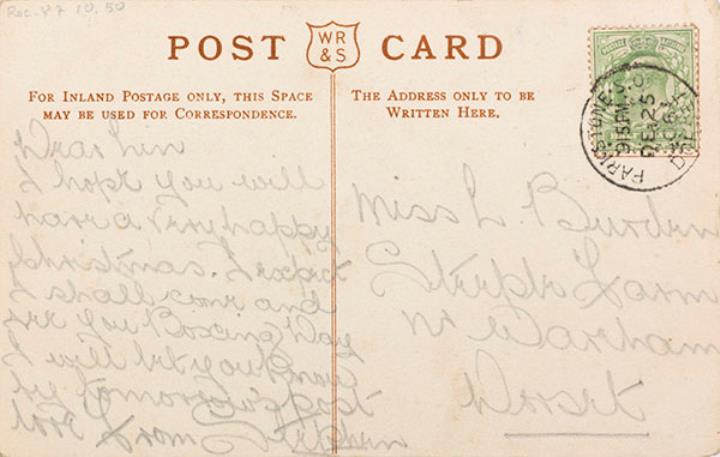 Rec. 87 10.50
POST CARD
WR
& S
FOR INLAND POSTAGE ONLY, THIS SPACE
MAY BE USED FOR CORRESPONDENCE.
THE ADDRESS ONLY TO BE
WRITTEN HERE.
PARKSTONE. S.O.
915PM
DE 25
DORSET
Dear Lin
I hope you will
have a very happy
Christmas. I expect
I shall come and
see you Boxing Day
I will let you know
by tomorrow's post
love from Stephen
Miss L. Burden
Farm
Nr Wareham
Dorset